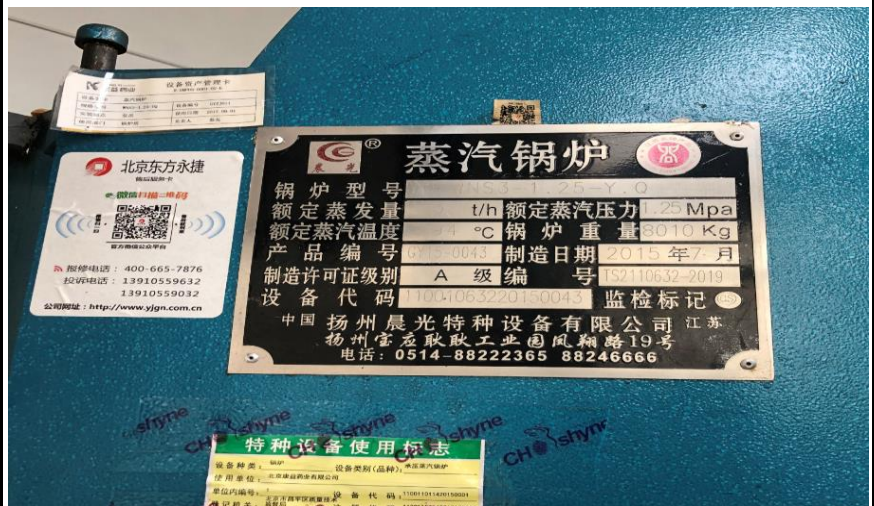 设备资产管理卡
蒸汽锅炉
北京东方永捷
售后服务卡
微信扫描二维码
官方微信公众平台
报修电话：400-665-7876
投诉电话：13910559632
13910559032
公司网址：http://www.yjgn.com.cn
晨光 ® 蒸汽锅炉
锅炉型号 NS3-1.25-Y.Q
额定蒸发量 t/h 额定蒸汽压力 1.25 Mpa
额定蒸汽温度 ℃ 锅炉重量 8010 Kg
产品编号 制造日期 2015年7月
制造许可证级别 A级 编号 TS2110632-2019
设备代码 11001063220150043 监检标记
中国 扬州晨光特种设备有限公司 江苏
扬州宝应耿耿工业园凤翔路19号
电话：0514-88222365 88246666
shyne
CH shyne
shyne
CH shyne
特种设备使用标志
设备种类：锅炉 设备类别(品种)：承压蒸汽锅炉
使用单位：北京康益药业有限公司
单位内编号： 设备代码：
北京市昌平区质量技术
登记机关：监督局